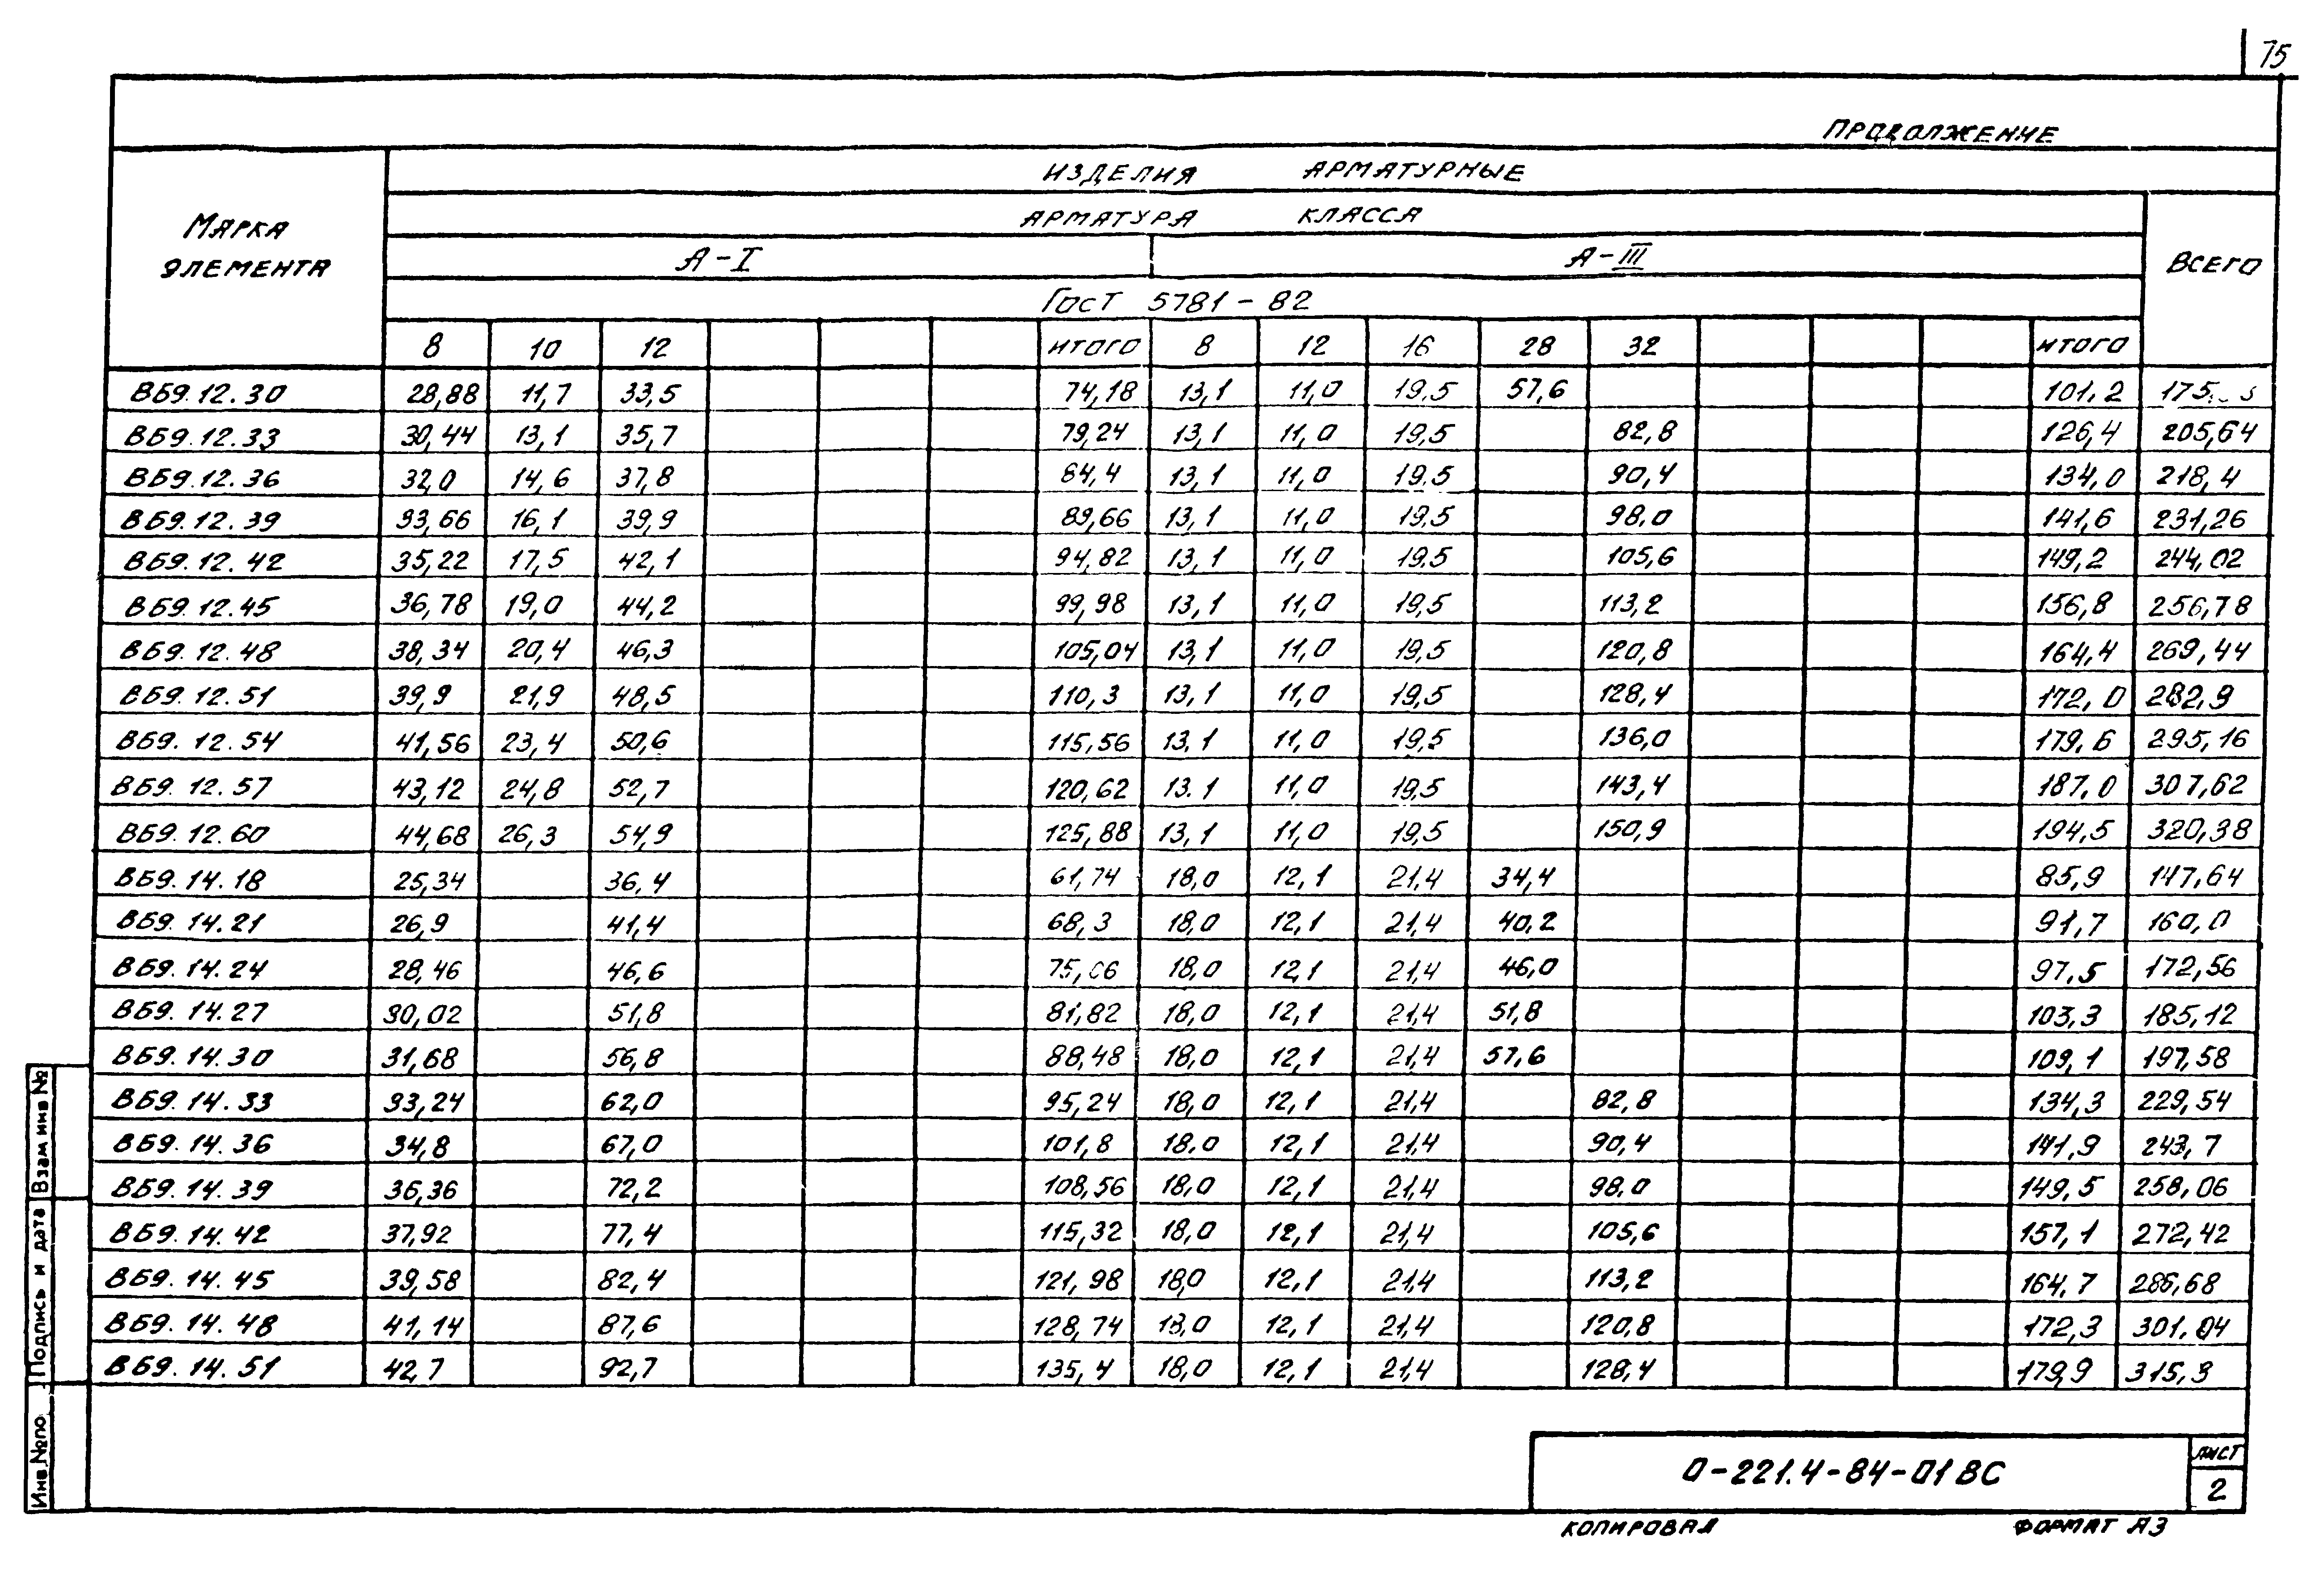 75
ПРОДОЛЖЕНИЕ
МАРКА ЭЛЕМЕНТА
ИЗДЕЛИЯ АРМАТУРНЫЕ
АРМАТУРА КЛАССА
ВСЕГО
А-I А-III
ГОСТ 5781-82
8 10 12 ИТОГО 8 12 16 28 32 ИТОГО
ВБ9.12.30 28,88 11,7 33,5 74,18 13,1 11,0 19,5 57,6 101,2
ВБ9.12.33 30,44 13,1 35,7 79,24 13,1 11,0 19,5 82,8 126,4 205,64
ВБ9.12.36 32,0 14,6 37,8 84,4 13,1 11,0 19,5 90,4 134,0 218,4
ВБ9.12.39 33,66 16,1 39,9 89,66 13,1 11,0 19,5 98,0 141,6 231,26
ВБ9.12.42 35,22 17,5 42,1 94,82 13,1 11,0 19,5 105,6 149,2 244,02
ВБ9.12.45 36,78 19,0 44,2 99,98 13,1 11,0 19,5 113,2 156,8 256,78
ВБ9.12.48 38,34 20,4 46,3 105,04 13,1 11,0 19,5 120,8 164,4 269,44
ВБ9.12.51 39,9 21,9 48,5 110,3 13,1 11,0 19,5 128,4 172,0 282,9
ВБ9.12.54 41,56 23,4 50,6 115,56 13,1 11,0 19,5 136,0 179,6 295,16
ВБ9.12.57 43,12 24,8 52,7 120,62 13.1 11,0 19,5 143,4 187,0 307,62
ВБ9.12.60 44,68 26,3 54,9 125,88 13,1 11,0 19,5 150,9 194,5 320,38
ВБ9.14.18 25,34 36,4 61,74 18,0 12,1 21,4 34,4 85,9 147,64
ВБ9.14.21 26,9 41,4 68,3 18,0 12,1 21,4 40,2 91,7 160,0
ВБ9.14.24 28,46 46,6 75,06 18,0 12,1 21,4 46,0 97,5 172,56
ВБ9.14.27 30,02 51,8 81,82 18,0 12,1 21,4 51,8 103,3 185,12
ВБ9.14.30 31,68 56,8 88,48 18,0 12,1 21,4 57,6 109,1 197,58
ВБ9.14.33 33,24 62,0 95,24 18,0 12,1 21,4 82,8 134,3 229,54
ВБ9.14.36 34,8 67,0 101,8 18,0 12,1 21,4 90,4 141,9 243,7
ВБ9.14.39 36,36 72,2 108,56 18,0 12,1 21,4 98,0 149,5 258,06
ВБ9.14.42 37,92 77,4 115,32 18,0 12,1 21,4 105,6 157,1 272,42
ВБ9.14.45 39,58 82,4 121,98 18,0 12,1 21,4 113,2 164,7 286,68
ВБ9.14.48 41,14 87,6 128,74 18,0 12,1 21,4 120,8 172,3 301,04
ВБ9.14.51 42,7 92,7 135,4 18,0 12,1 21,4 128,4 179,9 315,3
Инв.№по. Подпись и дата Взам инв №
0-221.4-84-01ВС
ЛИСТ
2
КОПИРОВАЛ ФОРМАТ А3